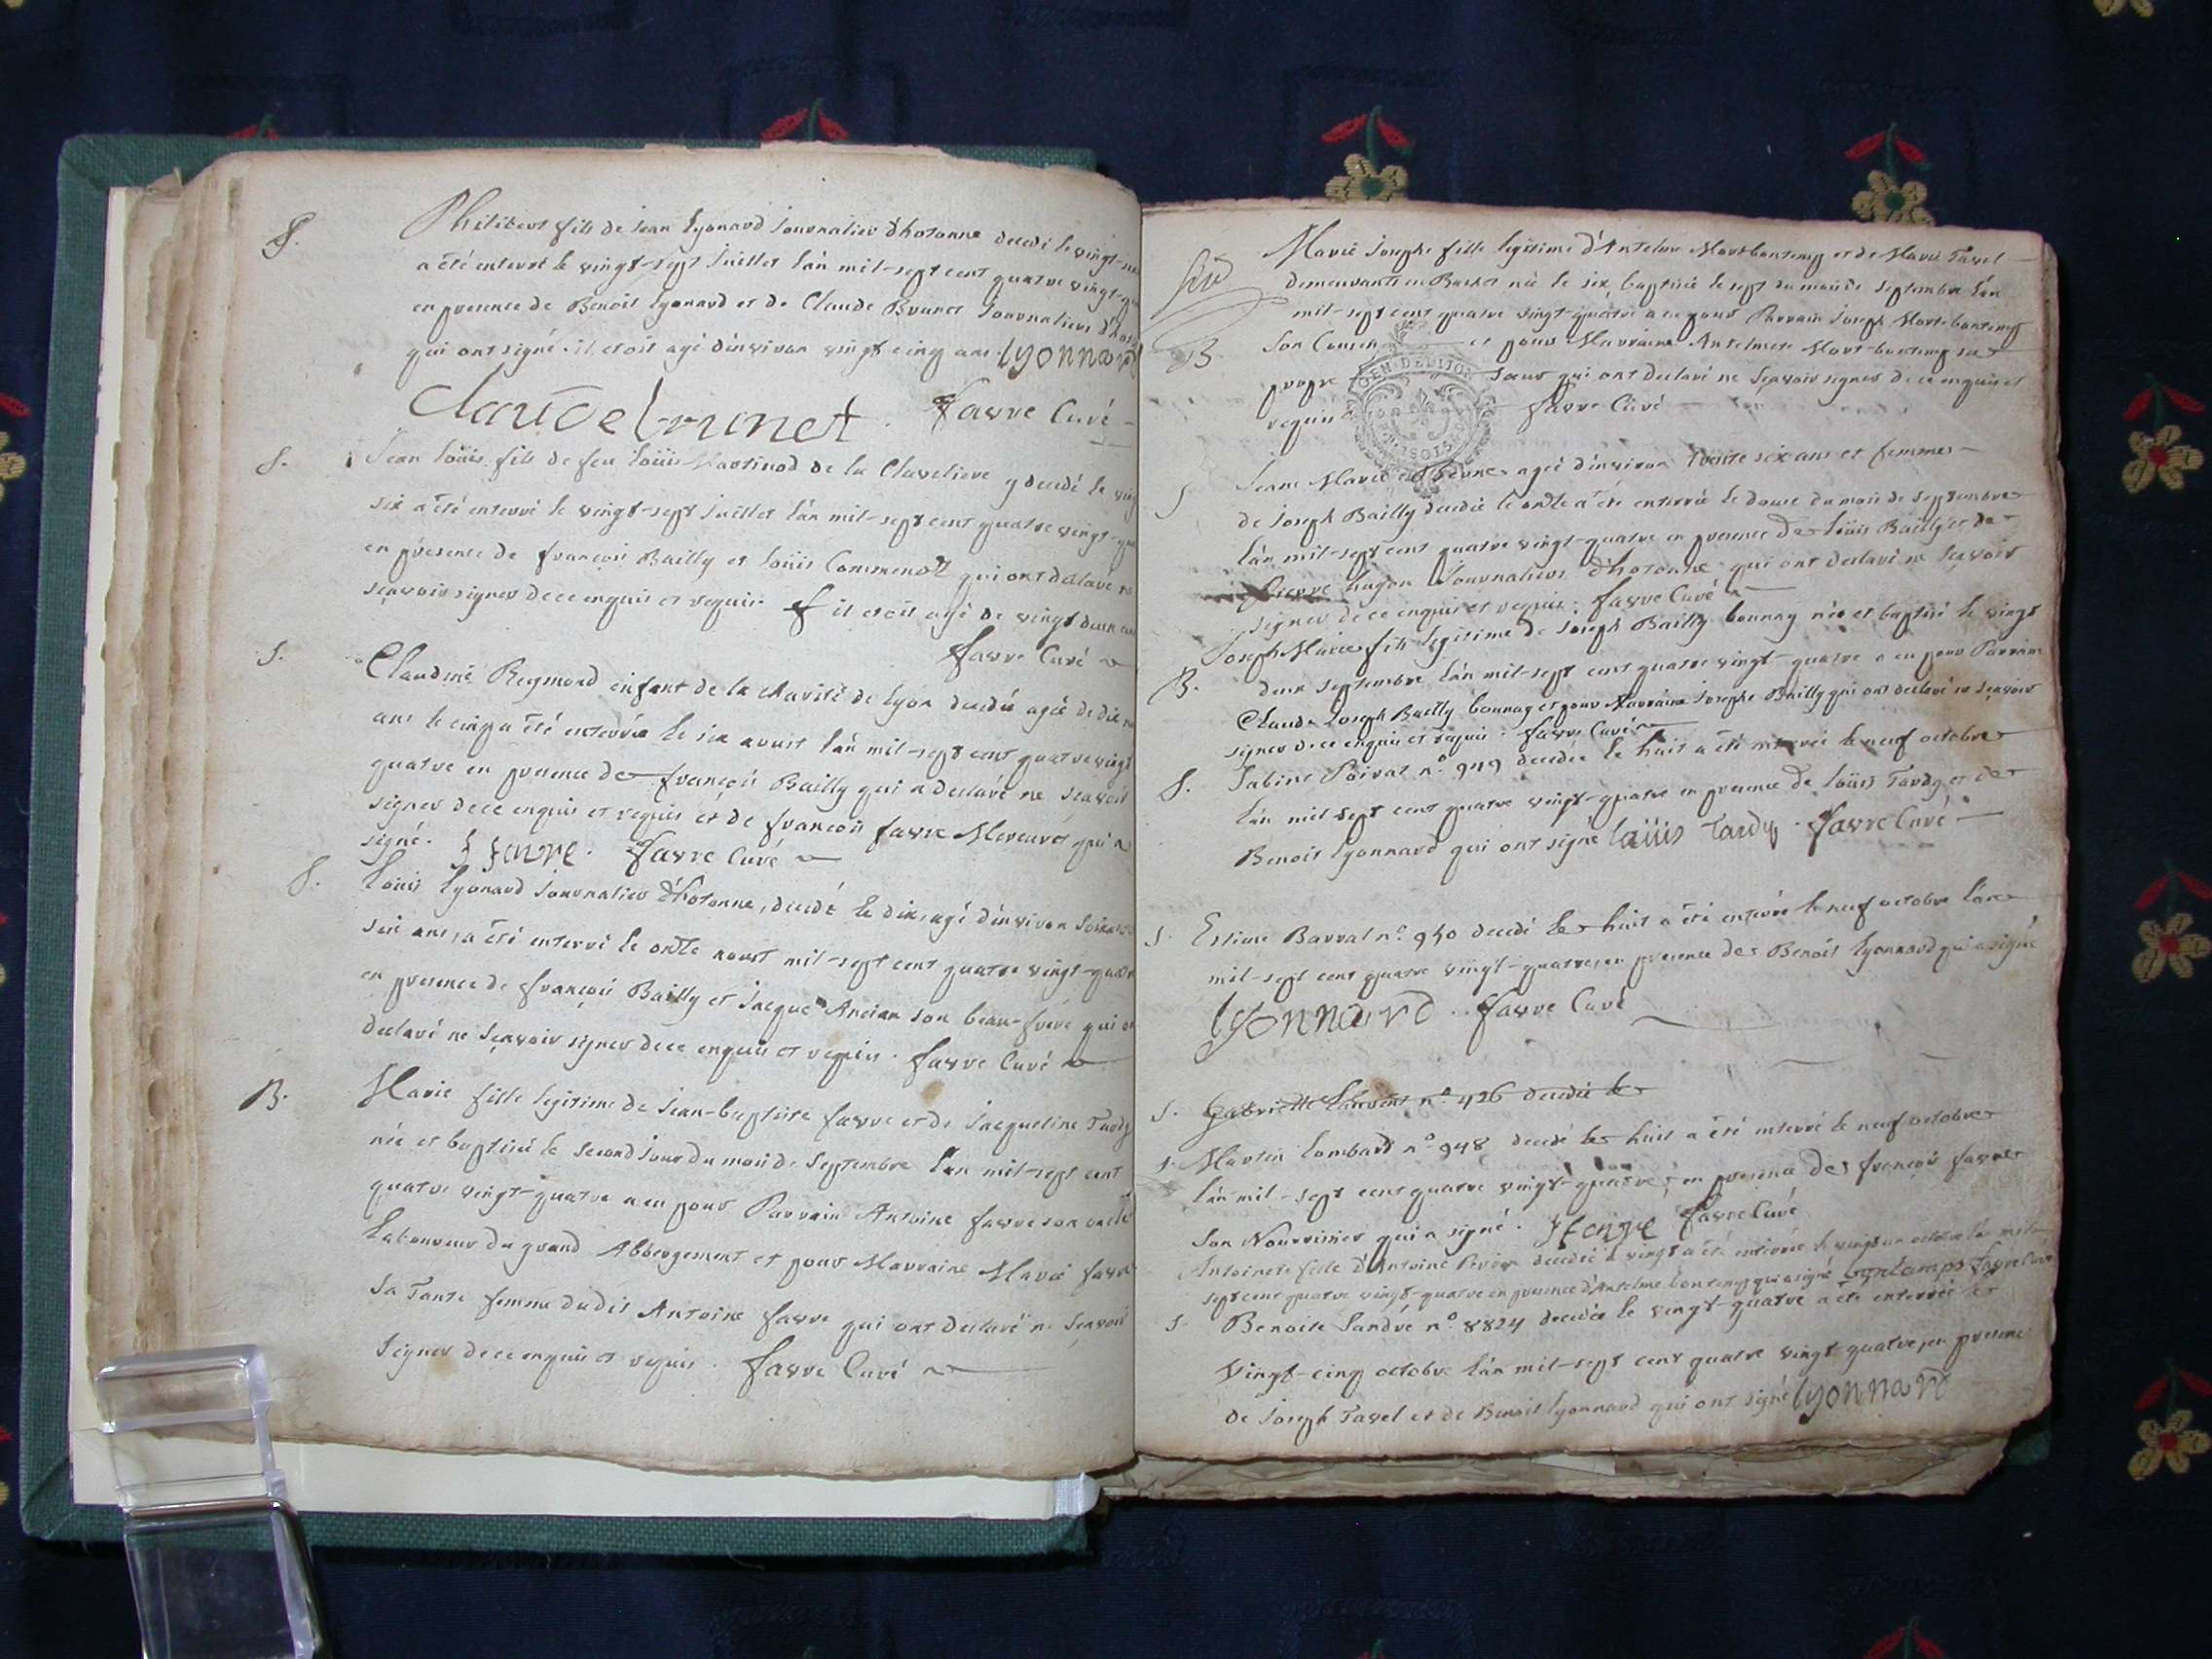 S.
Philibert fils de Jean Lyonard Journalier d'hotonne decedé le vingt-
a été enterré le vingt-sept Juillet l'an mil-sept cent quatre vingt-
en presence de Benoit Lyonard et de Claude Brunet Journaliers
qui ont signé. il etoit agé d'environ vingt cinq ans. lyonnard
Claude brunet. Favre Curé
S.
Jean Loüis fils de feu Loüis Martinod de la Claveliere y decedé le
six a été enterré le vingt-sept Juillet l'an mil-sept cent quatre vingt-
en presence de françois Bailly et Loüis qui ont declaré
sçavoir signer de ce enquis et requis. il etoit agé de vingt deux
Favre Curé
S.
Claudine Reymond enfant de la charité de Lyon decedée agée de
ans le cinq a été enterrée le six aoust l'an mil-sept cent quatre vingt
quatre en presence de françois Bailly qui a declaré ne sçavoir
signer de ce enquis et requis et de françois favre qui a
signé. f favre. Favre Curé
S.
Loüis Lyonard Journalier d'hotonne, decedé le dix, agé d'environ
six ans, a été enterré le onze aoust mil-sept cent quatre vingt-quatre
en presence de françois Bailly et Jacque Ancian son beau-frere qui
declaré ne sçavoir signer de ce enquis et requis. favre Curé
B.
Marie fille legitime de Jean-baptiste favre et de Jacqueline Tardy
née et baptisée le second jour du mois de Septembre l'an mil-sept cent
quatre vingt-quatre a eu pour Parrain Antoine favre son oncle
Laboureur du grand Abbergement et pour Marraine Marie favre
sa Tante femme dudit Antoine favre qui ont declaré ne sçavoir
signer de ce enquis et requis. favre Curé
Marie Josephe fille legitime d'Antelme Mortbontemp et de Marie Tavel
demeurants en née le six, baptisée le sept du mois de septembre l'an
mil-sept cent quatre vingt-quatre a eu pour Parrain Joseph Mort-bontemp
B.
son Cousin et pour Marraine Antelmete Mort-bontemp sa
propre soeur qui ont declaré ne sçavoir signer de ce enquis et
requis favre Curé
S
Jeane Marie agée d'environ trente six ans et femme
de Joseph Bailly decedée le onze a été enterrée le douze du mois de septembre
l'an mil-sept cent quatre vingt-quatre en presence de Loüis Bailly et de
Pierre hugon Journaliers d'hotonne qui ont declaré ne sçavoir
signer de ce enquis et requis. favre Curé
B.
Joseph Marie fils legitime de Joseph Bailly bonnay née et baptisé le vingt
deux septembre l'an mil-sept cent quatre vingt-quatre a eu pour Parrain
Claude Joseph Bailly bonnay et pour Marraine Josephe Bailly qui ont declaré ne sçavoir
signer de ce enquis et requis. favre Curé
S.
Sabine Poivat n.o 949 decedée le huit a été enterrée le neuf octobre
l'an mil-sept cent quatre vingt-quatre en presence de Loüis Tardy et de
Benoit Lyonnard qui ont signé laüis tardy. favre Curé
S.
Etiene Barrat n.o 950 decedé le huit a été enterré le neuf octobre l'an
mil-sept cent quatre vingt-quatre, en presence de Benoit Lyonnard qui a signé
lyonnard. favre Curé
S.
Gabrielle Laurent n.o 426 decedée le
S.
Martin Lombard n.o 948 decedé le huit a été enterré le neuf octobre
l'an mil-sept cent quatre vingt-quatre, en presence de françois favre
son Nourricier qui a signé. f favre favre Curé
Antoinete fille d'Antoine decedée le vingt a été enterrée le vingt un octobre l'an mil
sept cent quatre vingt-quatre en presence d'Antelme bontemps qui a signé bontemps favre Curé
S
Benoite Landré n.o 8824 decedée le vingt-quatre a été enterrée le
vingt-cinq octobre l'an mil-sept cent quatre vingt quatre, en presence
de Joseph Tavel et de Benoit Lyonnard qui ont signé lyonnard